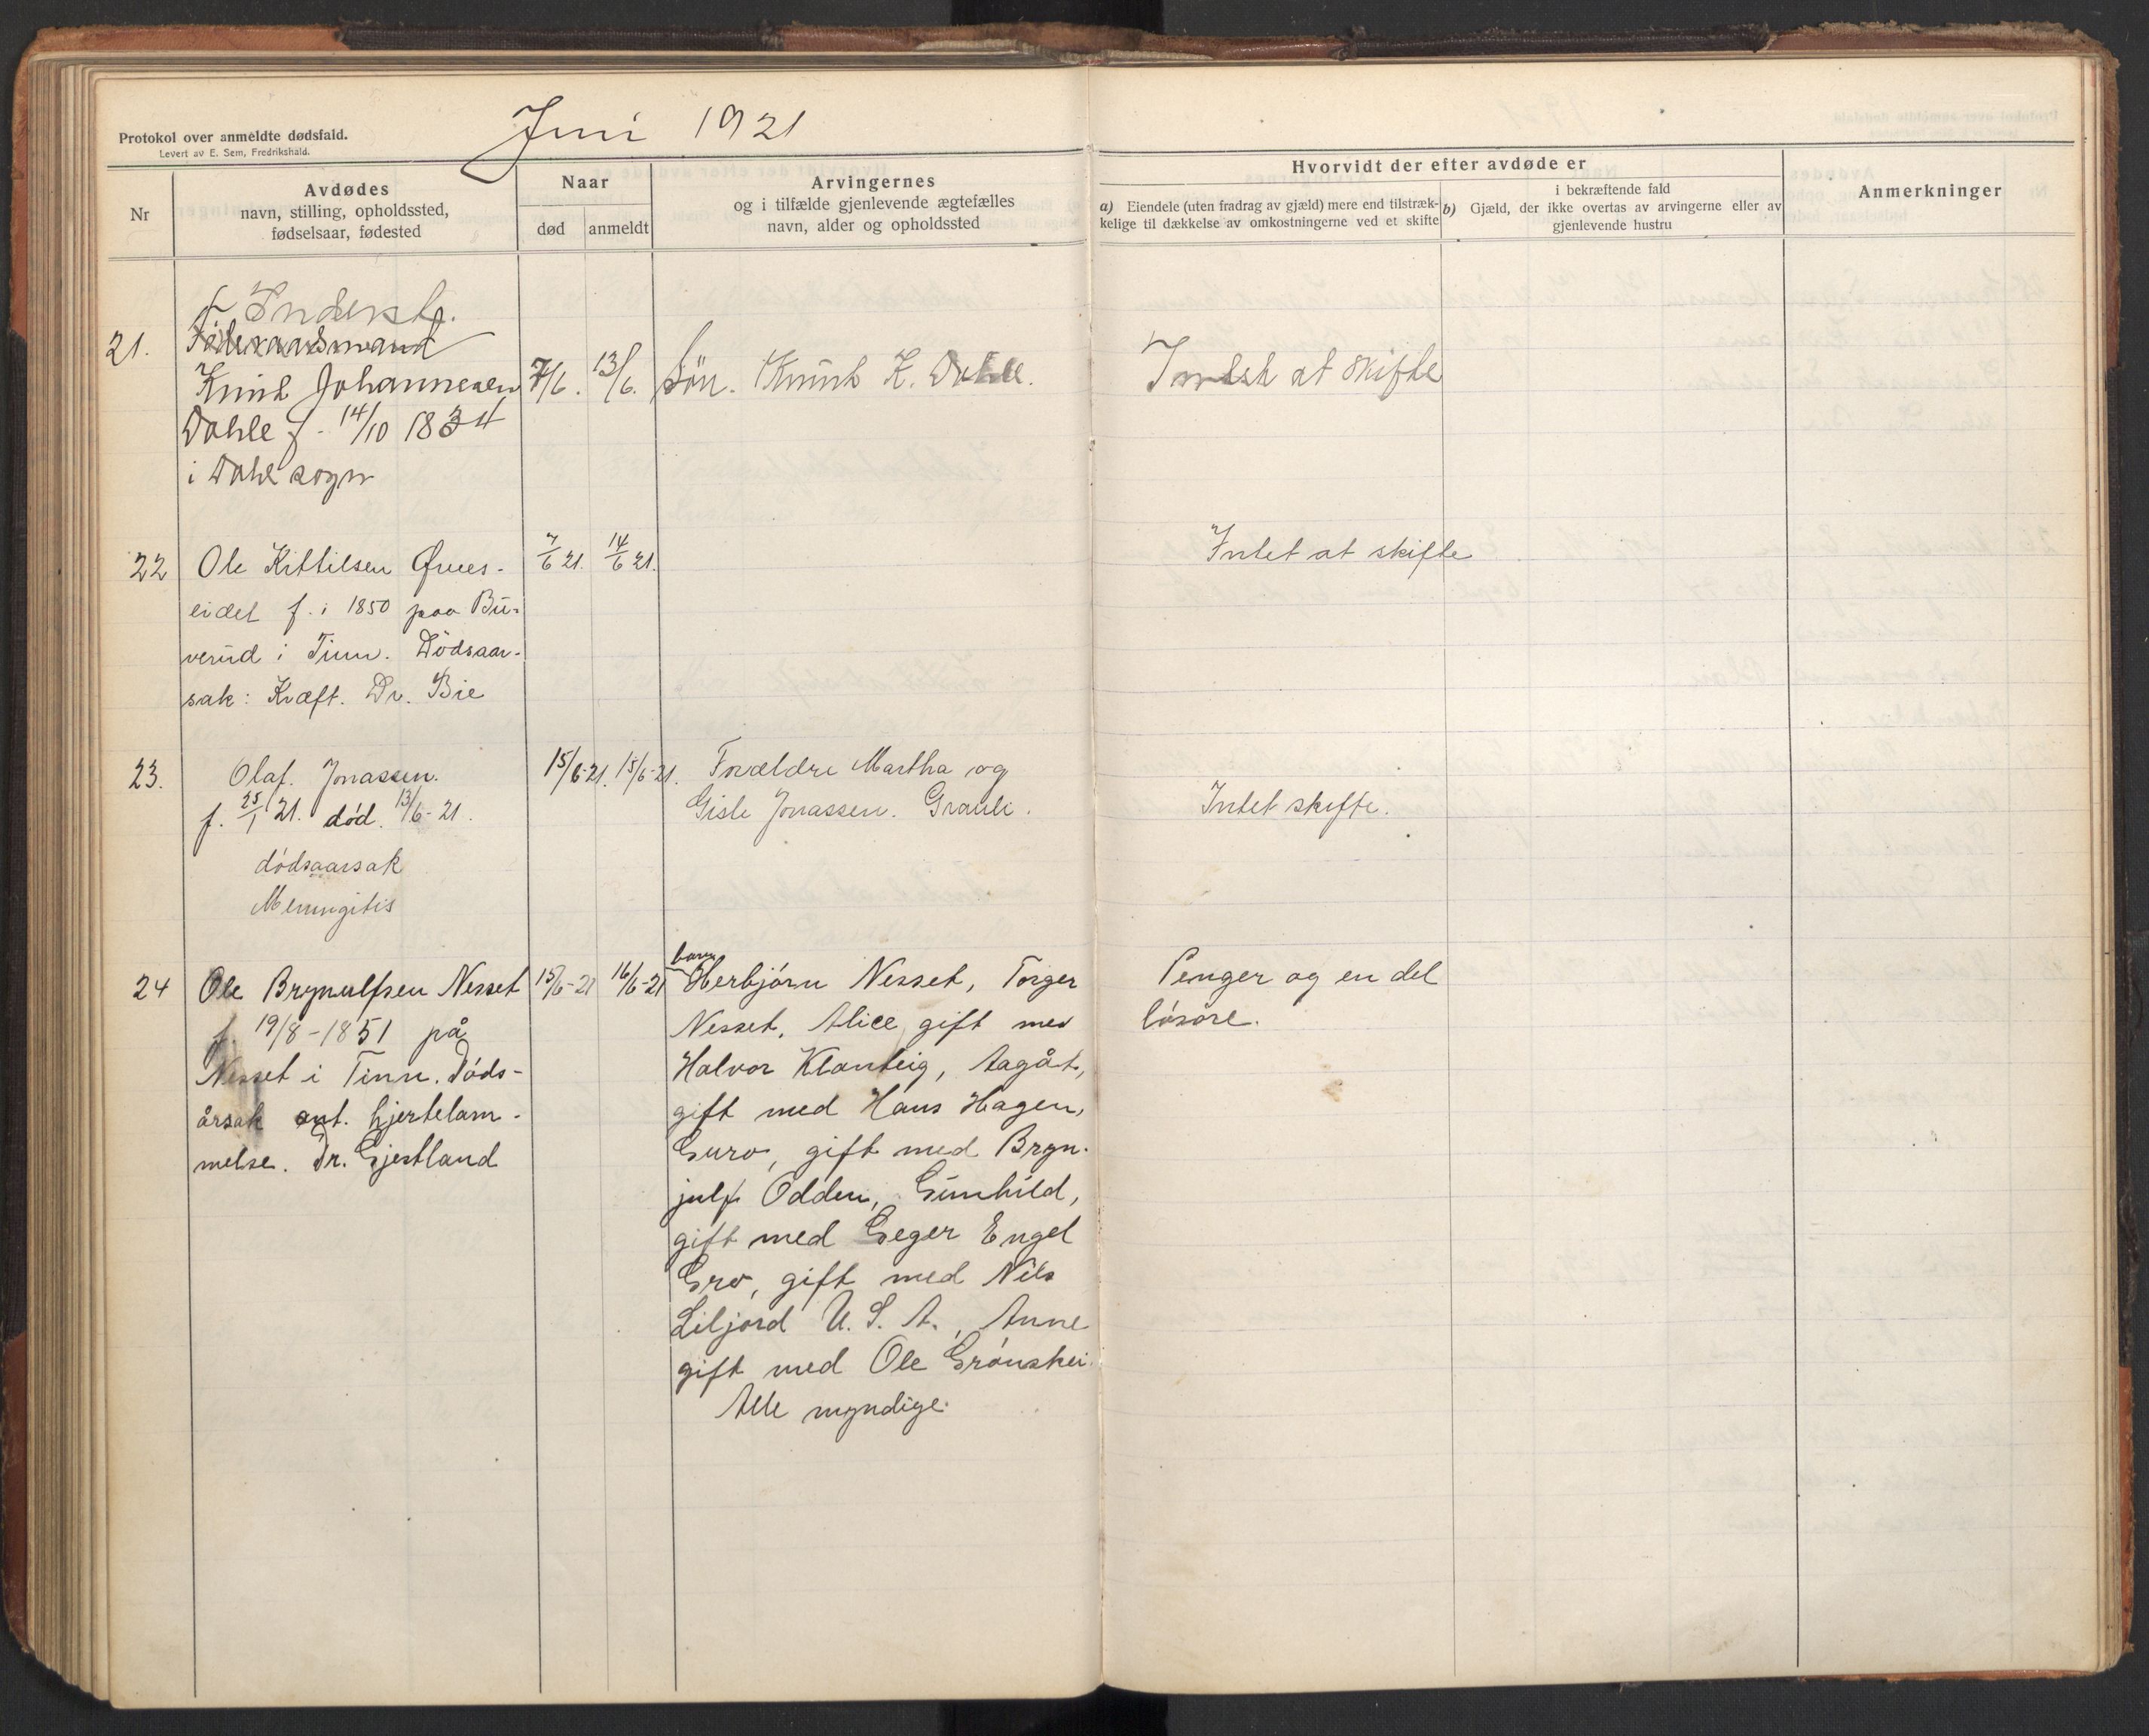 Juni 1921
Protokol over anmeldte dødsfald.
Levert av E. Sem, Fredrikshald.
Nr
Avdødes
navn, stilling, opholdssted,
fødselsaar, fødested
Naar
død
anmeldt
Arvingernes
og i tilfælde gjenlevende ægtefælles
navn, alder og opholdssted
Hvorvidt der efter avdøde er
a) Eiendele (uten fradrag av gjæld) mere end tilstræk-
kelige til dækkelse av omkostningerne ved et skifte
i bekræftende fald
b) Gjæld, der ikke overtas av arvingerne eller av
gjenlevende hustru
Anmerkninger
21.
Føderaadsmand
Knut Johannesen 7/6. 13/6. Søn. Knut K. Dahle. Intet at skifte
Dahle f. 14/10 1834
i Dahl sogn
22 Ole Kittilsen Øvres- 7/6 21. 14/6 21. Intet at skifte
eidet f. i 1850 paa Bu-
verud i Tinn. Dödsaar-
sak: Kræft. Dr. Bie
23. Olaf. Jonassen. 15/6-21. 15/6-21. Forældre Martha og
f. 25/1 21. död. 13/6-21. Gisle Jonassen. Grauli. Intet skifte.
dödsaarsak
Meningitis
24 Ole Brynulfsen Nesset 15/6-21 16/6-21 barn Herbjörn Nesset, Torger Penger og en del
f. 19/8-1851 på Nesset, Alice, gift med lösöre.
Nesset i Tinn. Döds- Halvor Klonteig, Aagåt,
årsak ant. hjertelam- gift med Hans Hagen,
melse. Dr. Gjestland Guro, gift med Bryn-
julf Odden, Gunhild,
gift med Geger Engel
Gro, gift med Nils
Liljord U. S. A., Anne
gift med Ole Grönskei.
Alle myndige.